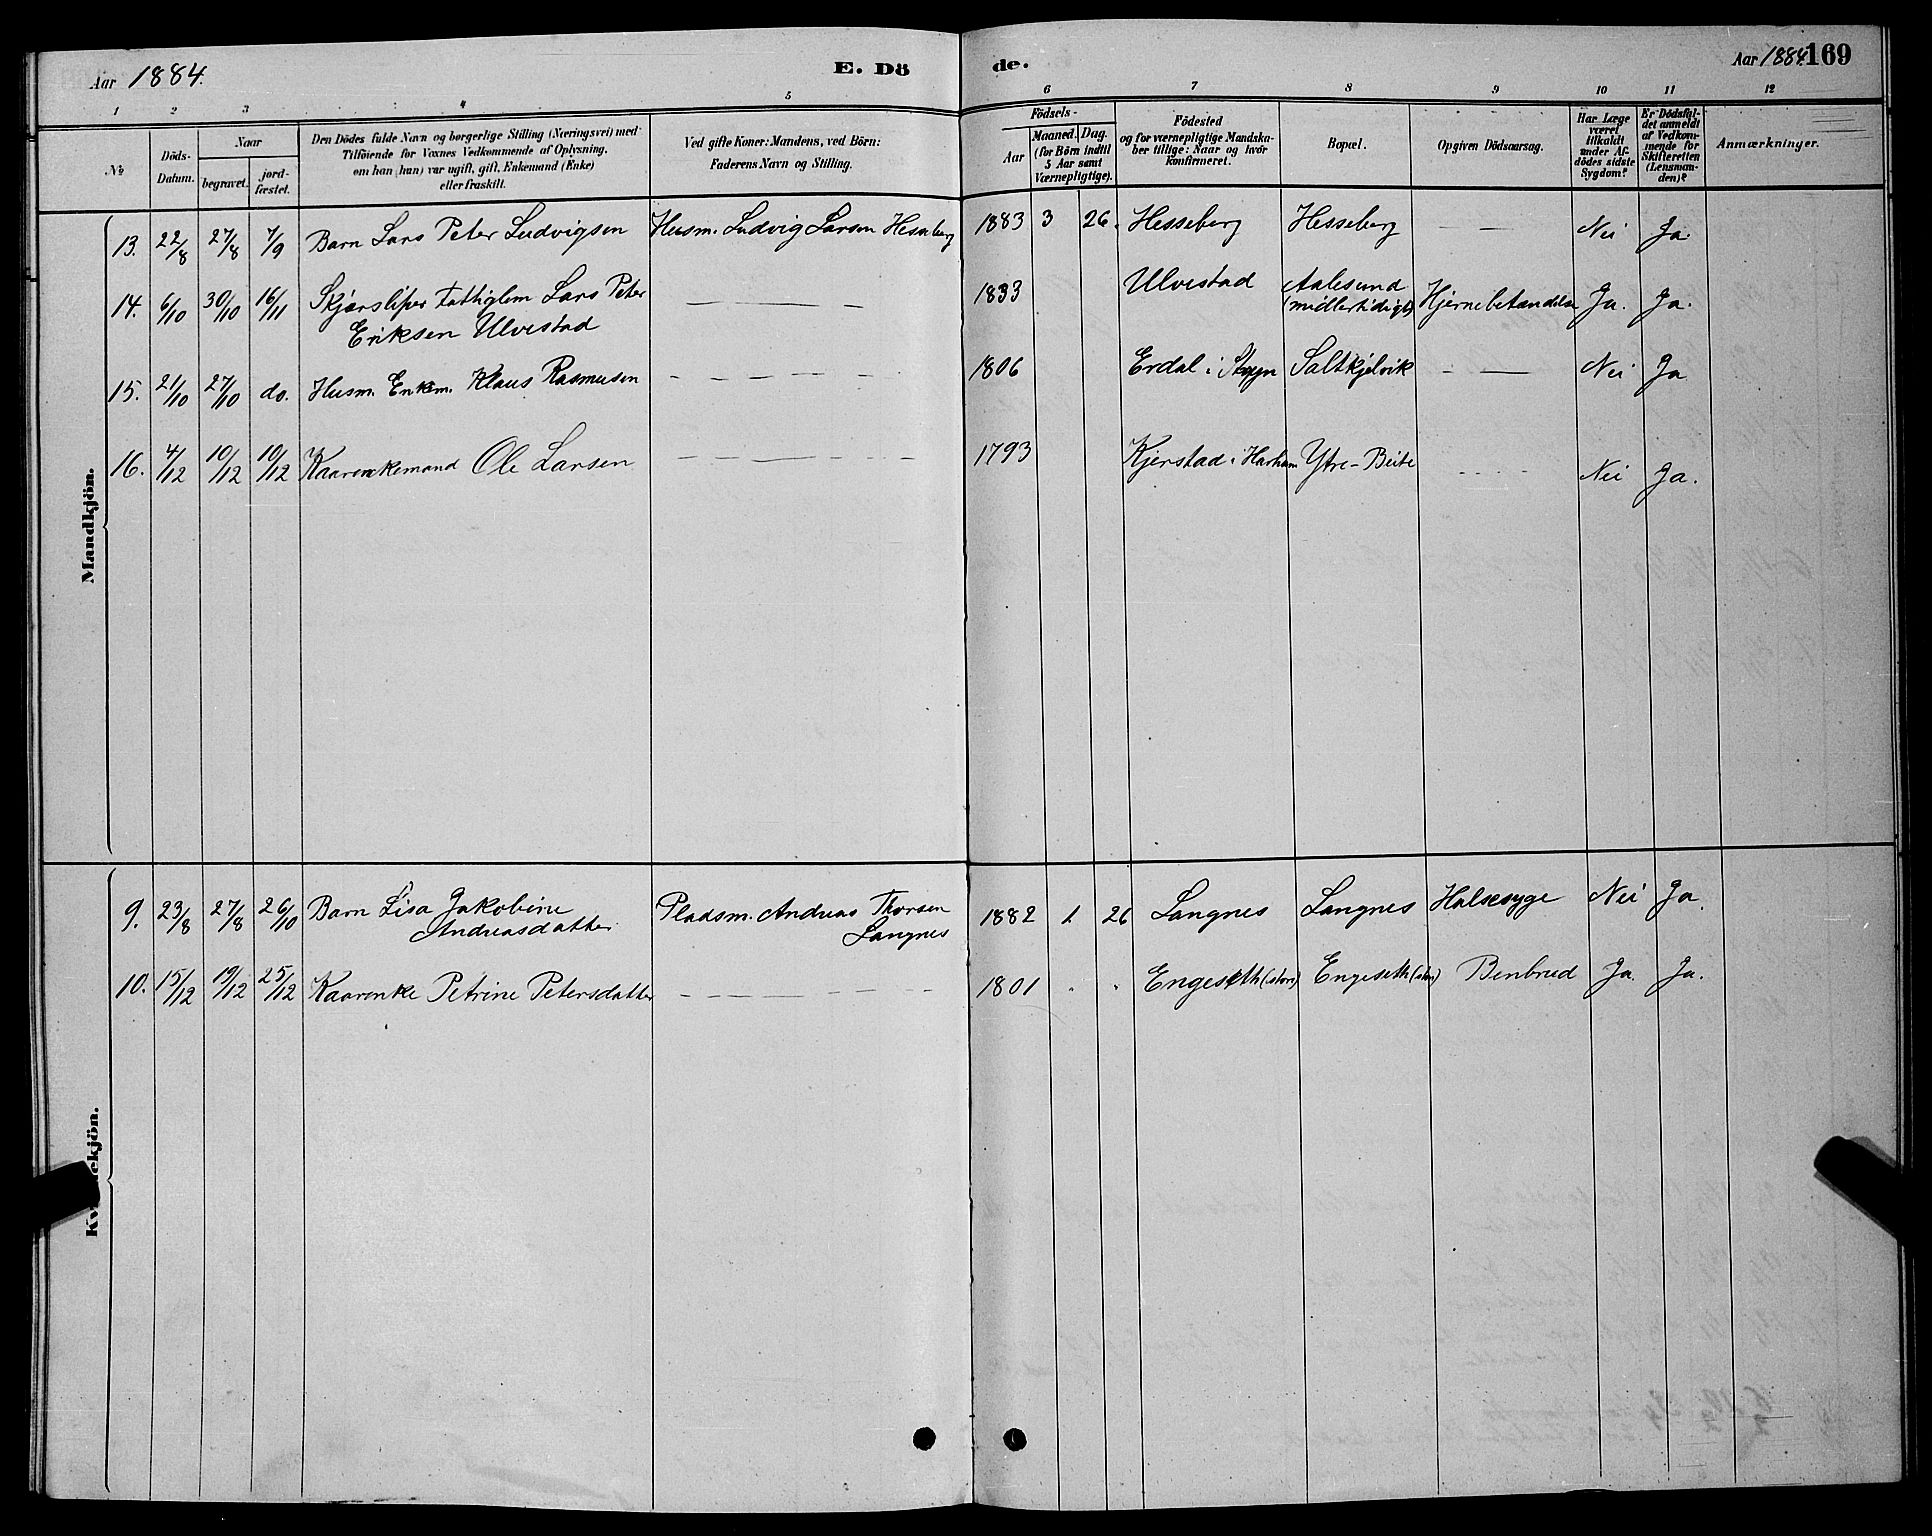 Aar 1884.
E. Dö
de.
Aar 1884.
169
1 2 3 4 5 6 7 8 9 10 11 12
No
Döds-
Datum.
Naar
begravet.
jord-
fæstet.
Den Dödes fulde Navn og borgerlige Stilling (Næringsvei) med
Tilföiende for Voxnes Vedkommende af Oplysning,
om han (hun) var ugift, gift, Enkemand (Enke)
eller fraskilt.
Ved gifte Koner: Mandens, ved Börn:
Faderens Navn og Stilling.
Födsels-
Aar
Maaned. Dag.
(for Börn indtil
5 Aar samt
Værnepligtige).
Födested
og for værnepligtige Mandska-
ber tillige: Naar og hvor
Konfirmeret.
Bopæl.
Opgiven Dödsaarsag.
Har Læge
været
tilkaldt
under Af-
dödes sidste
Sygdom?
Er Dödsfal-
det anmeldt
af Vedkom-
mende for
Skifteretten
(Lensman-
den)?
Anmærkninger.
Mandkjön.
13. 22/8 27/8 7/9 Barn Lars Peter Ludvigsen Husm. Ludvig Larsen Hesseberg 1883 3 26. Hesseberg Hesseberg — — Nei Ja.
14. 6/10 30/10 16/11 Skjærsliper Fattiglem Lars Peter
Eriksen Ulvestad — — — 1833 Ulvestad Aalesund
(midlertidigt) Hjernebetændelse Ja. Ja.
15. 21/10 27/10 do. Husm. Enkem. Klaus Rasmusen — — — 1806 Erdal i Stryn Saltkjelvik — — Nei Ja
16. 4/12 10/12 10/12 Kaarenkemand Ole Larsen — — — 1793 Kjerstad i Harham Ytre-Beite — — Nei Ja.
Kv
ekjön.
9. 23/8 27/8 26/10 Barn Lisa Jakobine
Andreasdatter Pladsm. Andreas Thorsen
Langnes 1882 1 26 Langnes Langnes Halsesyge Nei Ja.
10. 15/12 19/12 25/12 Kaarenke Petrine Petersdatter — — — 1801 " " Engeseth (store) Engeseth (store) Benbrud Ja. Ja.